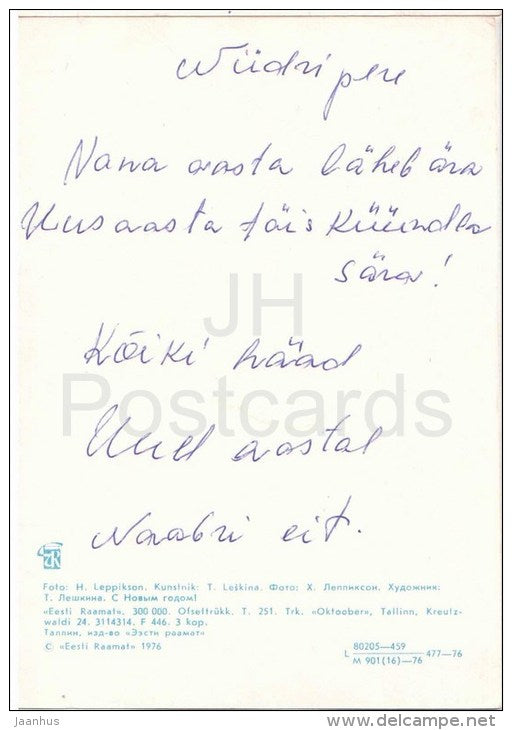 Nüüdri pere
Vana aasta läheb ära
Uus aasta täis küündla
sära!
JH
Kõiki hääd
Postcards
Uuel aastal
Naabri eit.
Foto: H. Leppikson. Kunstnik: T. Leškina. Фото: Х. Леппиксон. Художник:
Т. Лешкина. С Новым годом!
«Eesti Raamat». 300 000. Ofsettrükk. T. 251. Trk. «Oktoober», Tallinn, Kreutz-
waldi 24. 3114314. F 446. 3 kop.
Таллин, изд-во «Ээсти раамат»
© «Eesti Raamat» 1976
L 80205—459 477—76
M 901(16)—76
jaanhus
www.delcampe.net